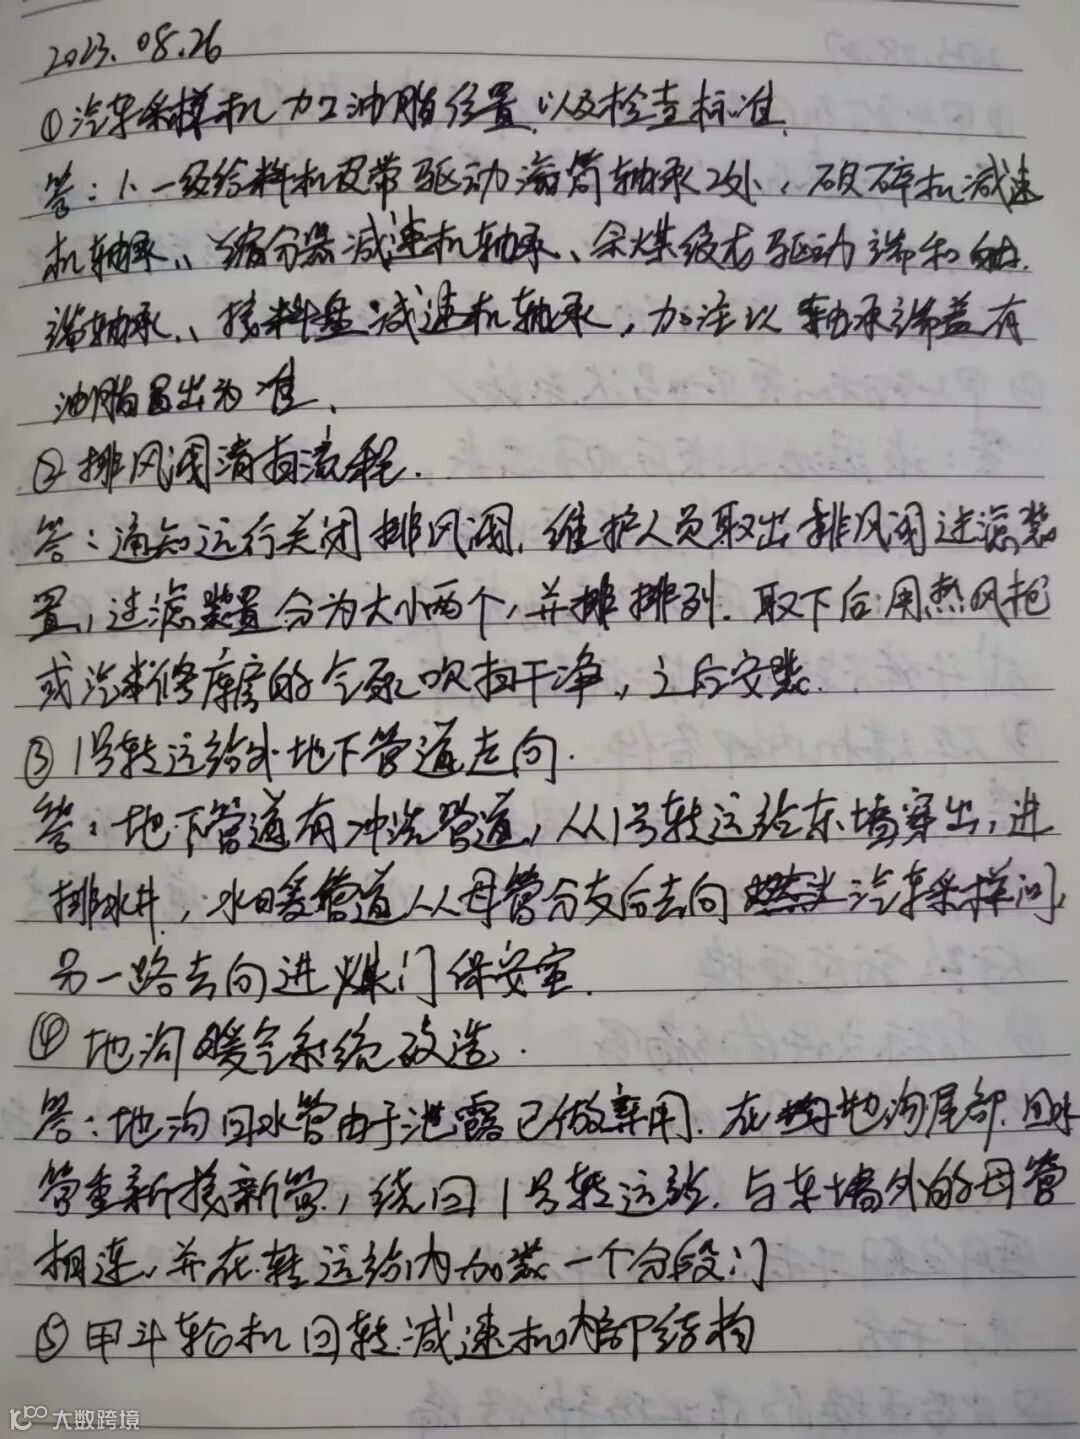 2023.08.26
①汽车采样机加油脂位置,以及检查标准.
答:1、一级给料机皮带驱动滚筒轴承2处、破碎机减速
机轴承、缩分器减速机轴承、余煤级 驱动端和
端轴承、接料盘减速机轴承,加注以轴承端盖有
油脂冒出为准.
②排风阀清扫流程.
答:通知运行关闭排风阀,维护人员取出排风阀过滤装
置,过滤装置分为大小两个,并排排列.取下后用热风枪
或汽车修库房的气泵吹扫干净,之后安装.
③1号转运站外地下管道走向.
答:地下管道有冲洗管道,从1号转运站东墙穿出,进
排水井,水暖管道从母管分支后去向 汽车采样间,
另一路去向进煤门保安室.
④地沟暖气系统改造.
答:地沟回水管由于泄露已做弃用.在 地沟尾部.回水
管重新接新管,绕回1号转运站.与东墙外的母管
相连,并在转运站内加装一个分段门
⑤甲斗轮机回转减速机内部结构
大数跨境